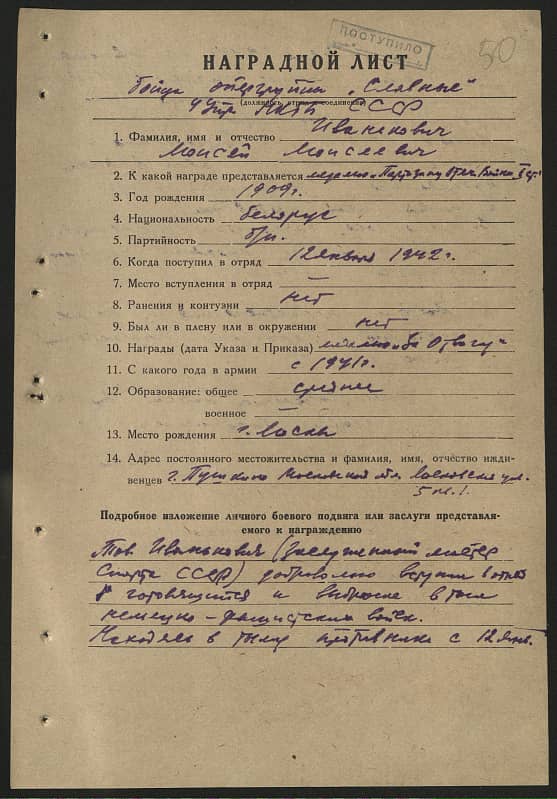 ПОСТУПИЛО
50
НАГРАДНОЙ ЛИСТ
бойца опергруппы „Славные"
4 Упр НКГБ СССР
(должность, отряд, соединение)
1. Фамилия, имя и отчество Иванькович
Моисей Моисеевич
2. К какой награде представляется медали „Партизану Отеч. Войны
3. Год рождения 1909 г.
4. Национальность белорус
5. Партийность б/п.
6. Когда поступил в отряд 12 января 1942 г.
7. Место вступления в отряд —
8. Ранения и контузии нет
9. Был ли в плену или в окружении нет
10. Награды (дата Указа и Приказа) медаль „за Отвагу"
11. С какого года в армии с 1941 г.
12. Образование: общее среднее
военное —
13. Место рождения г.
14. Адрес постоянного местожительства и фамилия, имя, отчество ижди-
венцев г. Пушкино Московской обл. Московская ул.
5
Подробное изложение личного боевого подвига или заслуги представля-
емого к награждению
Тов. Иванькович (заслуженный мастер
спорта СССР) добровольно вступил в отряд
готовящийся к выброске в тыл
немецко-фашистских войск.
Находясь в тылу противника с 12 янв.